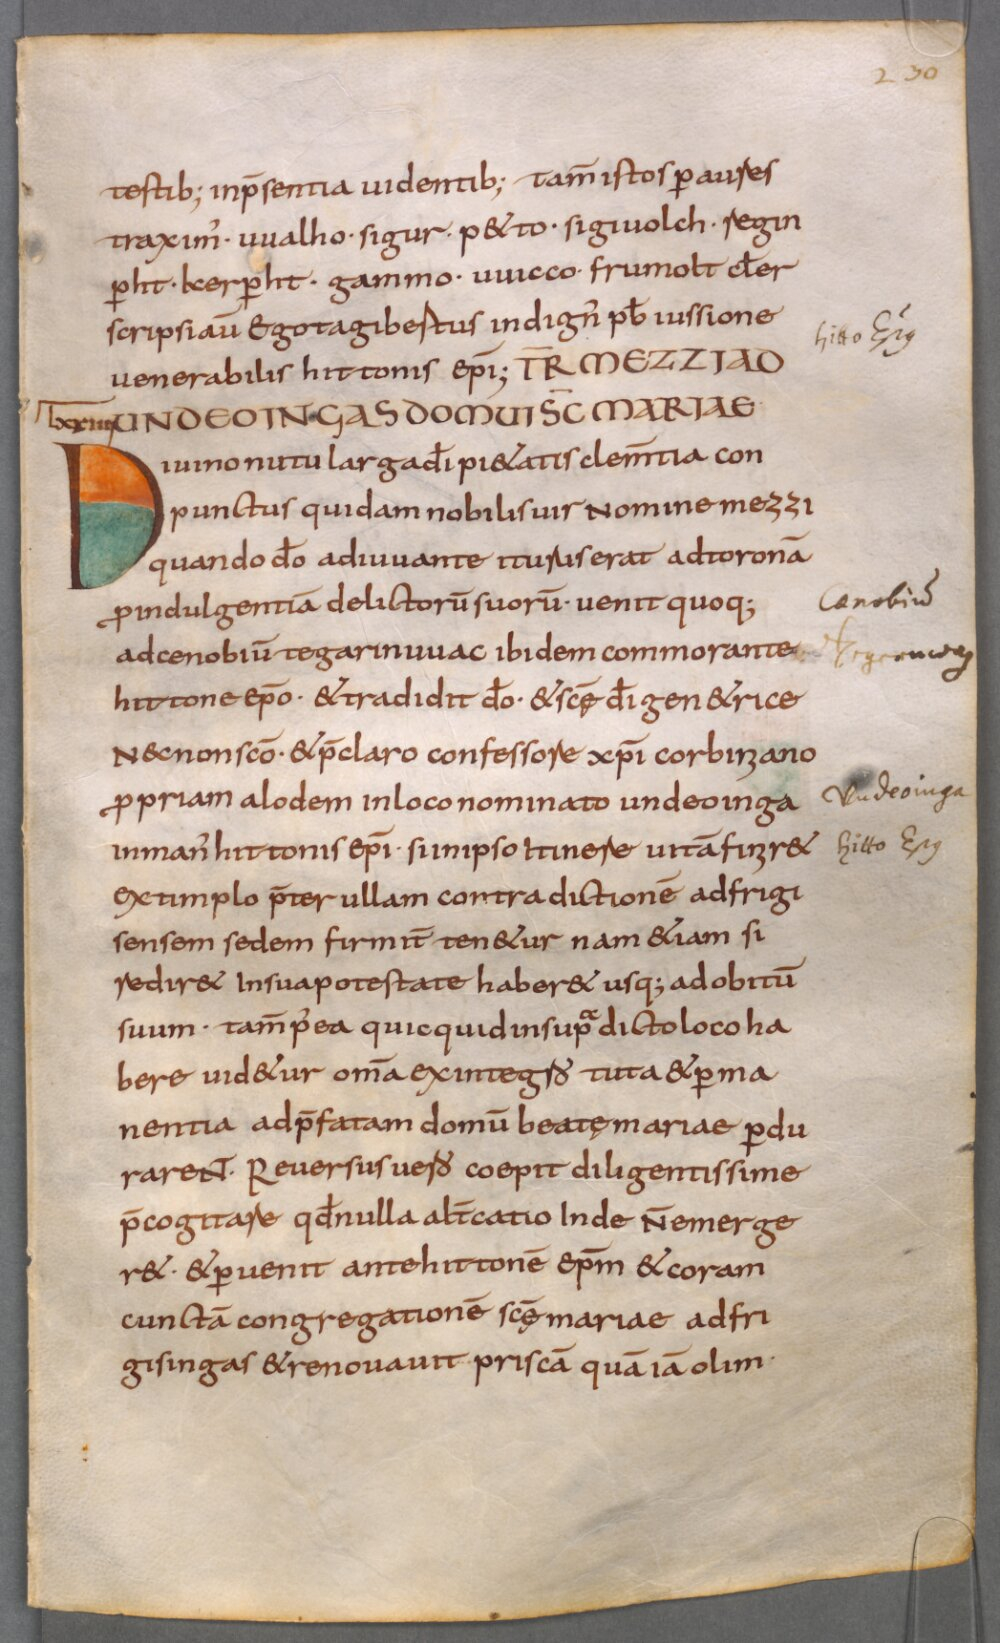 230
testib; inp̄sentia uidentib; tam̄ istos p̱ aures
traxim̓· uualho· sigur· p&to· siguuolch· regin
p̱ht· kerp̱ht· gammo· uuicco· frumolt cl̄er
scripsi aū Ego tagibertus indign̓ pb̄ iussione
uenerabilis hittonis ep̄i; T̄R MEZZI AD
hitto
lxxiiii UNDEOINGAS DOMUI S̄C MARIAE
Diuino nutu larga d̄i pi&atis clem̄tia con
punctus quidam nobilis uir Nomine mezzi
quando d̄o adiuuante iturus erat ad toronā
ꝓ indulgentiā delictorū suorū· uenit quoq;
Cœnobiū
ad cenobiū tegarinuuac ibidem commorante
hittone ep̄o· & tradidit d̄o· & scę̄ d̄i gen&rice
N&non sc̄o· & p̄claro confessore xp̄i corbiniano
ꝓpriam alodem in loco nominato undeoinga
Vndeoinga
in man̓ hittonis ep̄i· si in ipso itinere uitā finir&
hitto
extimplo p̄ter ullam contradictionē ad frigi
sensem sedem firmit̄ ten&ur nam &iam si
redir& In sua potestate haber& usq; ad obitū
suum· tam̄ p̓ea quicquid in sup̱ᵃ dicto loco ha
bere uid&ur om̄a ex integro tuta & p̱ma
nentia ad p̄fatam domū beatę mariae p̱du
rareN̄· Reuersus uero coepit diligentissime
p̄cogitare qd̄ nulla alt̄catio Inde N̄ emerge
r&· & p̱uenit ante hittonē ep̄m & coram
cunctā congregationē scę̄ mariae ad fri
gisingas & renouauit priscā quā iā olim·